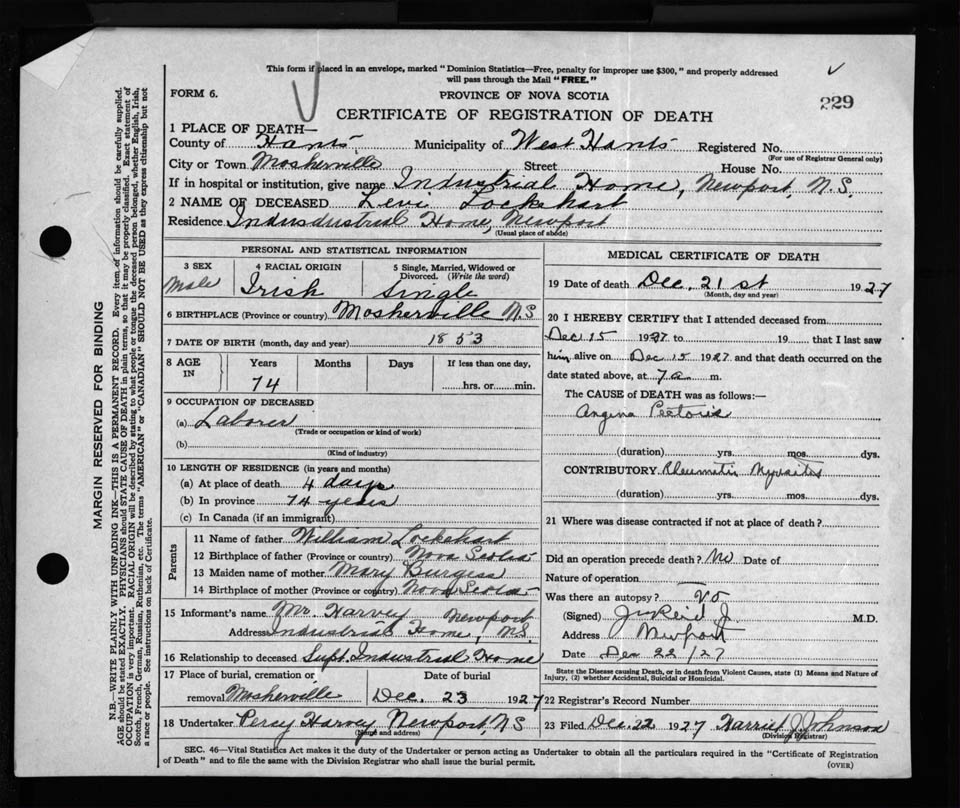 This form if placed in an envelope, marked "Dominion Statistics—Free, penalty for improper use $300," and properly addressed
will pass through the Mail "FREE."
FORM 6.
PROVINCE OF NOVA SCOTIA
229
CERTIFICATE OF REGISTRATION OF DEATH
1 PLACE OF DEATH—
County of Hants, Municipality of West Hants Registered No.
(For use of Registrar General only)
City or Town Mosherville Street House No.
If in hospital or institution, give name Industrial Home, Newport, N.S.
2 NAME OF DECEASED Levi Lockehart
Residence Indusdustrial Home, Newport
(Usual place of abode)
PERSONAL AND STATISTICAL INFORMATION
3 SEX
Male
4 RACIAL ORIGIN
Irish
5 Single, Married, Widowed or
Divorced. (Write the word)
Single
6 BIRTHPLACE (Province or country) Mosherville N.S
7 DATE OF BIRTH (month, day and year) 1853
8 AGE
IN
Years Months Days If less than one day,
74 hrs. or min.
9 OCCUPATION OF DECEASED
(a) Laborer
(Trade or occupation or kind of work)
(b)
(Kind of industry)
10 LENGTH OF RESIDENCE (in years and months)
(a) At place of death 4 days
(b) In province 74 years
(c) In Canada (if an immigrant)
Parents
11 Name of father William Lockehart
12 Birthplace of father (Province or country) Nova Scotia
13 Maiden name of mother Mary Burgess
14 Birthplace of mother (Province or country) Nova Scotia
15 Informant's name Mr. Harvey Newport
Address Industrial Home, N.S.
16 Relationship to deceased Supt. Industrial Home
17 Place of burial, cremation or Date of burial
removal Mosherville Dec. 23 1927
18 Undertaker Percy Harvey Newport, N.S
(Name and address)
MEDICAL CERTIFICATE OF DEATH
19 Date of death Dec. 21st 1927
(Month, day and year)
20 I HEREBY CERTIFY that I attended deceased from
Dec 15 1927 to 19 that I last saw
him alive on Dec 15 1927 and that death occurred on the
date stated above, at 7 a m.
The CAUSE of DEATH was as follows:—
Angina Pectoris
(duration) yrs. mos. dys.
CONTRIBUTORY Rheumatic Myositis
(duration) yrs. mos. dys.
21 Where was disease contracted if not at place of death?
Did an operation precede death? No Date of
Nature of operation
Was there an autopsy? No
(Signed) Reid M.D.
Address Newport
Date Dec 22/27
State the Disease causing Death, or in death from Violent Causes, state (1) Means and Nature of
Injury, (2) whether Accidental, Suicidal or Homicidal.
22 Registrar's Record Number
23 Filed Dec. 22 1927 Harriet J. Johnson
(Division Registrar)
SEC. 46—Vital Statistics Act makes it the duty of the Undertaker or person acting as Undertaker to obtain all the particulars required in the "Certificate of Registration
of Death" and to file the same with the Division Registrar who shall issue the burial permit.
(OVER)
MARGIN RESERVED FOR BINDING
N.B.—WRITE PLAINLY WITH UNFADING INK—THIS IS A PERMANENT RECORD. Every item of information should be carefully supplied.
AGE should be stated EXACTLY. PHYSICIANS should STATE CAUSE OF DEATH in plain terms, so that it may be properly classified. Exact statement of
OCCUPATION is very important. RACIAL ORIGIN will be described by stating to what people or tongue the deceased person belonged, whether English, Irish,
Scotch, French, German, Russian, Ruthenian, etc. The terms "AMERICAN" or "CANADIAN" SHOULD NOT BE USED as they express citizenship but not
a race or people. See instructions on back of Certificate.